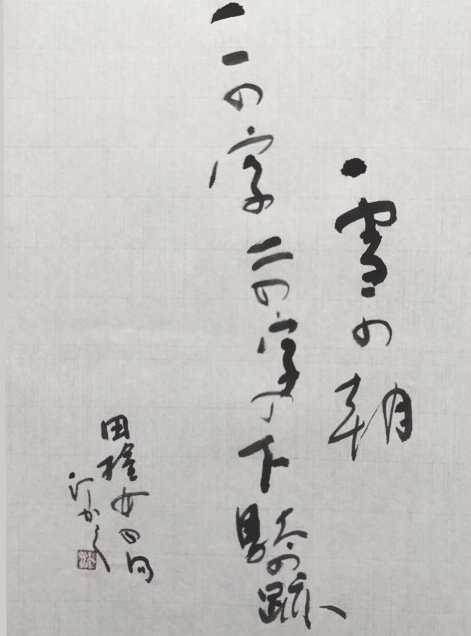 雪の朝
二の字二の字の下駄の跡
田捨女の句